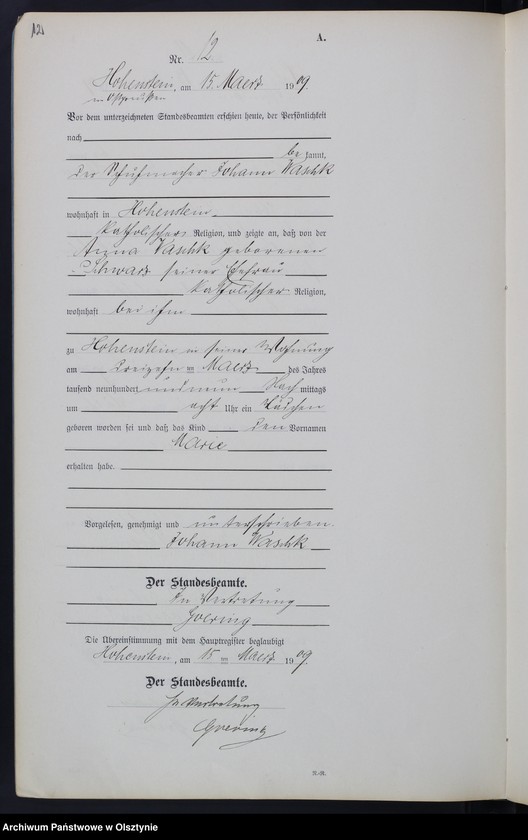 12
A.
Nr. 12.
Hohenstein, am 15. Maerz 1909.
in Ostpreußen
Vor dem unterzeichneten Standesbeamten erschien heute, der Persönlichkeit
nach
be kannt,
der Schuhmacher Johann Waschk
wohnhaft in Hohenstein
katholischer Religion, und zeigte an, daß von der
Anna Waschk geborenen
Schwarz seiner Ehefrau
katholischer Religion,
wohnhaft bei ihm
zu Hohenstein in seiner Wohnung
am dreizehnten Maerz des Jahres
tausend neunhundert und neun Nach mittags
um acht Uhr ein Mädchen
geboren worden sei und daß das Kind den Vornamen
Marie
erhalten habe.
Vorgelesen, genehmigt und unterschrieben.
Johann Waschk
Der Standesbeamte.
In Vertretung
Goering
Die Übereinstimmung mit dem Hauptregister beglaubigt
Hohenstein, am 15 ten Maerz 1909.
Der Standesbeamte.
In Vertretung
Goering
Archiwum Państwowe w Olsztynie